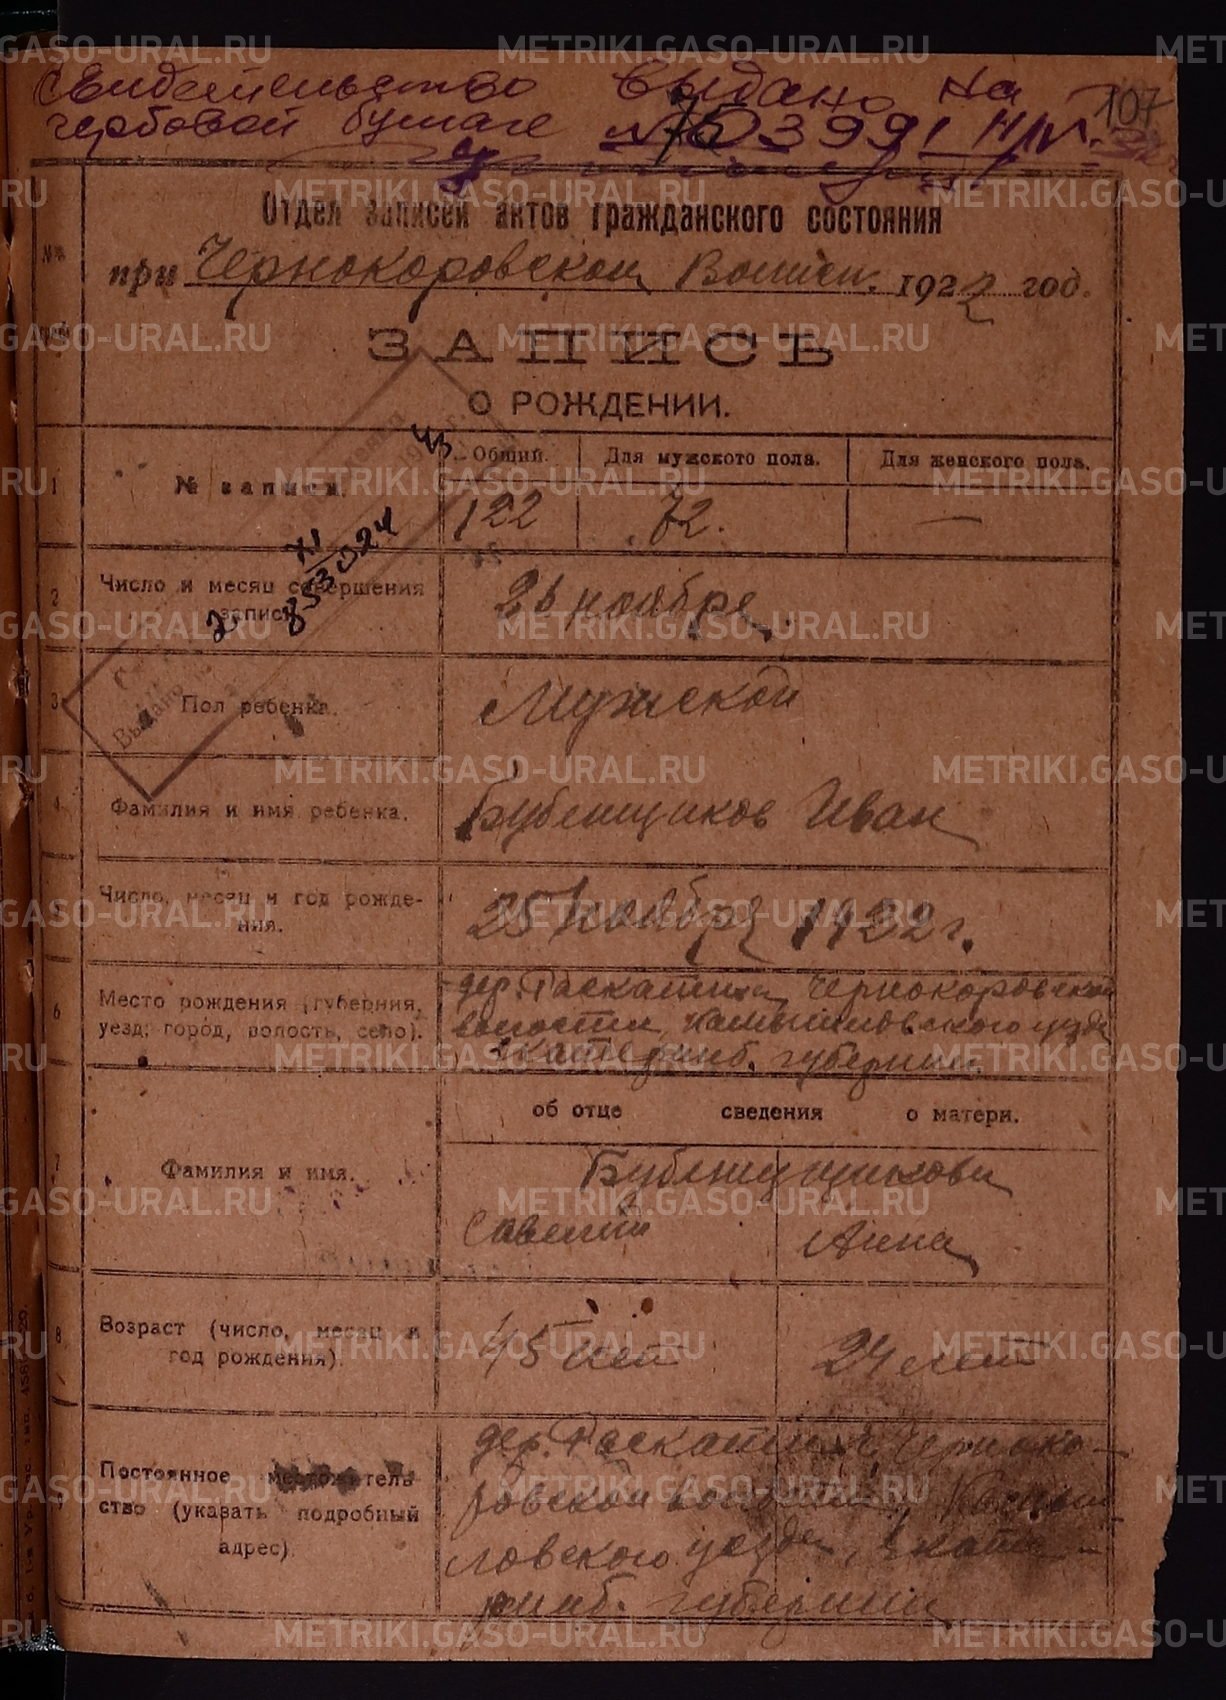 Свидетельство выдано на
гербовой бумаге № 03991
107
Отдел записей актов гражданского состояния
при Чернокоровской Волисп. 1922 год.
ЗАПИСЬ
О РОЖДЕНИИ.
1 № записи. Общий. Для мужского пола. Для женского пола.
122 72. —
2 Число и месяц совершения записи 26 ноября.
3 Пол ребенка. Мужской
4 Фамилия и имя ребенка. Бубенщиков Иван
Число, месяц и год рожде-
ния. 25 ноября 1922 г.
6 Место рождения (губерния,
уезд, город, волость, село).
дер. Раскатиха Чернокоровской
волости, Камышловского уезда
Екатеринб. губернии
об отце сведения о матери.
7 Фамилия и имя. Бубенщиковы
Савелий Анна
8 Возраст (число, месяц и
год рождения). 45 лет 24 лет
Постоянное местожитель
ство (указать подробный
адрес).
дер. Раскатиха, Черноко-
ровской волости, Камыш
ловского уезда, Екате-
ринб. губернии
METRIKI.GASO-URAL.RU